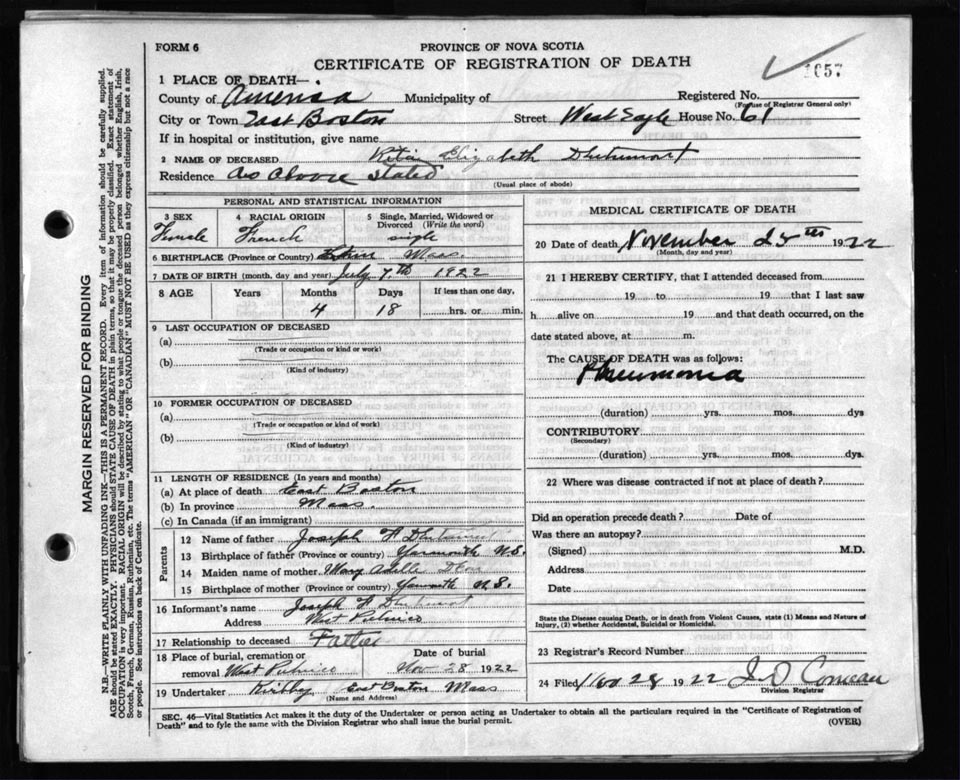 FORM 6
PROVINCE OF NOVA SCOTIA
CERTIFICATE OF REGISTRATION OF DEATH
1657
1 PLACE OF DEATH—
County of America Municipality of Registered No.
(For use of Registrar General only)
City or Town East Boston Street West Eagle House No. 61
If in hospital or institution, give name
2 NAME OF DECEASED Elizabeth
Residence As above stated
(Usual place of abode)
PERSONAL AND STATISTICAL INFORMATION
3 SEX 4 RACIAL ORIGIN 5 Single, Married, Widowed or Divorced (Write the word)
Female French single
6 BIRTHPLACE (Province or Country) Mass.
7 DATE OF BIRTH (month, day and year) July 7th 1922
8 AGE Years Months Days If less than one day,
4 18 hrs. or min.
9 LAST OCCUPATION OF DECEASED
(a)
(Trade or occupation or kind or work)
(b)
(Kind of industry)
10 FORMER OCCUPATION OF DECEASED
(a)
(Trade or occupation or kind of work)
(b)
(Kind of industry)
11 LENGTH OF RESIDENCE (In years and months)
(a) At place of death East Boston
(b) In province Mass.
(c) In Canada (if an immigrant)
Parents
12 Name of father Joseph H
13 Birthplace of father (Province or country) Yarmouth N.S.
14 Maiden name of mother Mary
15 Birthplace of mother (Province or country) Yarmouth N.S.
16 Informant's name Joseph H
Address West Pubnico
17 Relationship to deceased Father
18 Place of burial, cremation or Date of burial
removal West Pubnico Nov 28 1922
19 Undertaker Kirbby East Boston Mass
(Name and Address)
MEDICAL CERTIFICATE OF DEATH
20 Date of death November 25th 1922
(Month, day and year)
21 I HEREBY CERTIFY, that I attended deceased from
19 to 19 that I last saw
h alive on 19 and that death occurred, on the
date stated above, at m.
The CAUSE OF DEATH was as follows:
Pneumonia
(duration) yrs. mos. dys
CONTRIBUTORY
(Secondary)
(duration) yrs. mos. dys.
22 Where was disease contracted if not at place of death?
Did an operation precede death? Date of
Was there an autopsy?
(Signed) M.D.
Address
Date
State the Disease causing Death, or in death from Violent Causes, state (1) Means and Nature of
Injury, (2) whether Accidental, Suicidal or Homicidal.
23 Registrar's Record Number
24 Filed Nov 28 1922 J. D. Comeau
Division Registrar
SEC. 46—Vital Statistics Act makes it the duty of the Undertaker or person acting as Undertaker to obtain all the particulars required in the "Certificate of Registration of
Death" and to fyle the same with the Division Registrar who shall issue the burial permit. (OVER)
MARGIN RESERVED FOR BINDING
N.B.—WRITE PLAINLY WITH UNFADING INK—THIS IS A PERMANENT RECORD. Every item of information should be carefully supplied.
AGE should be stated EXACTLY. PHYSICIANS should STATE CAUSE OF DEATH in plain terms, so that it may be properly classified. Exact statement of
OCCUPATION is very important. RACIAL ORIGIN will be described by stating to what people or tongue the deceased person belonged whether English, Irish,
Scotch, French, German, Russian, Ruthenian, etc. The terms "AMERICAN" or "CANADIAN" MUST NOT BE USED as they express citizenship but not a race
or people. See instructions on back of Certificate.